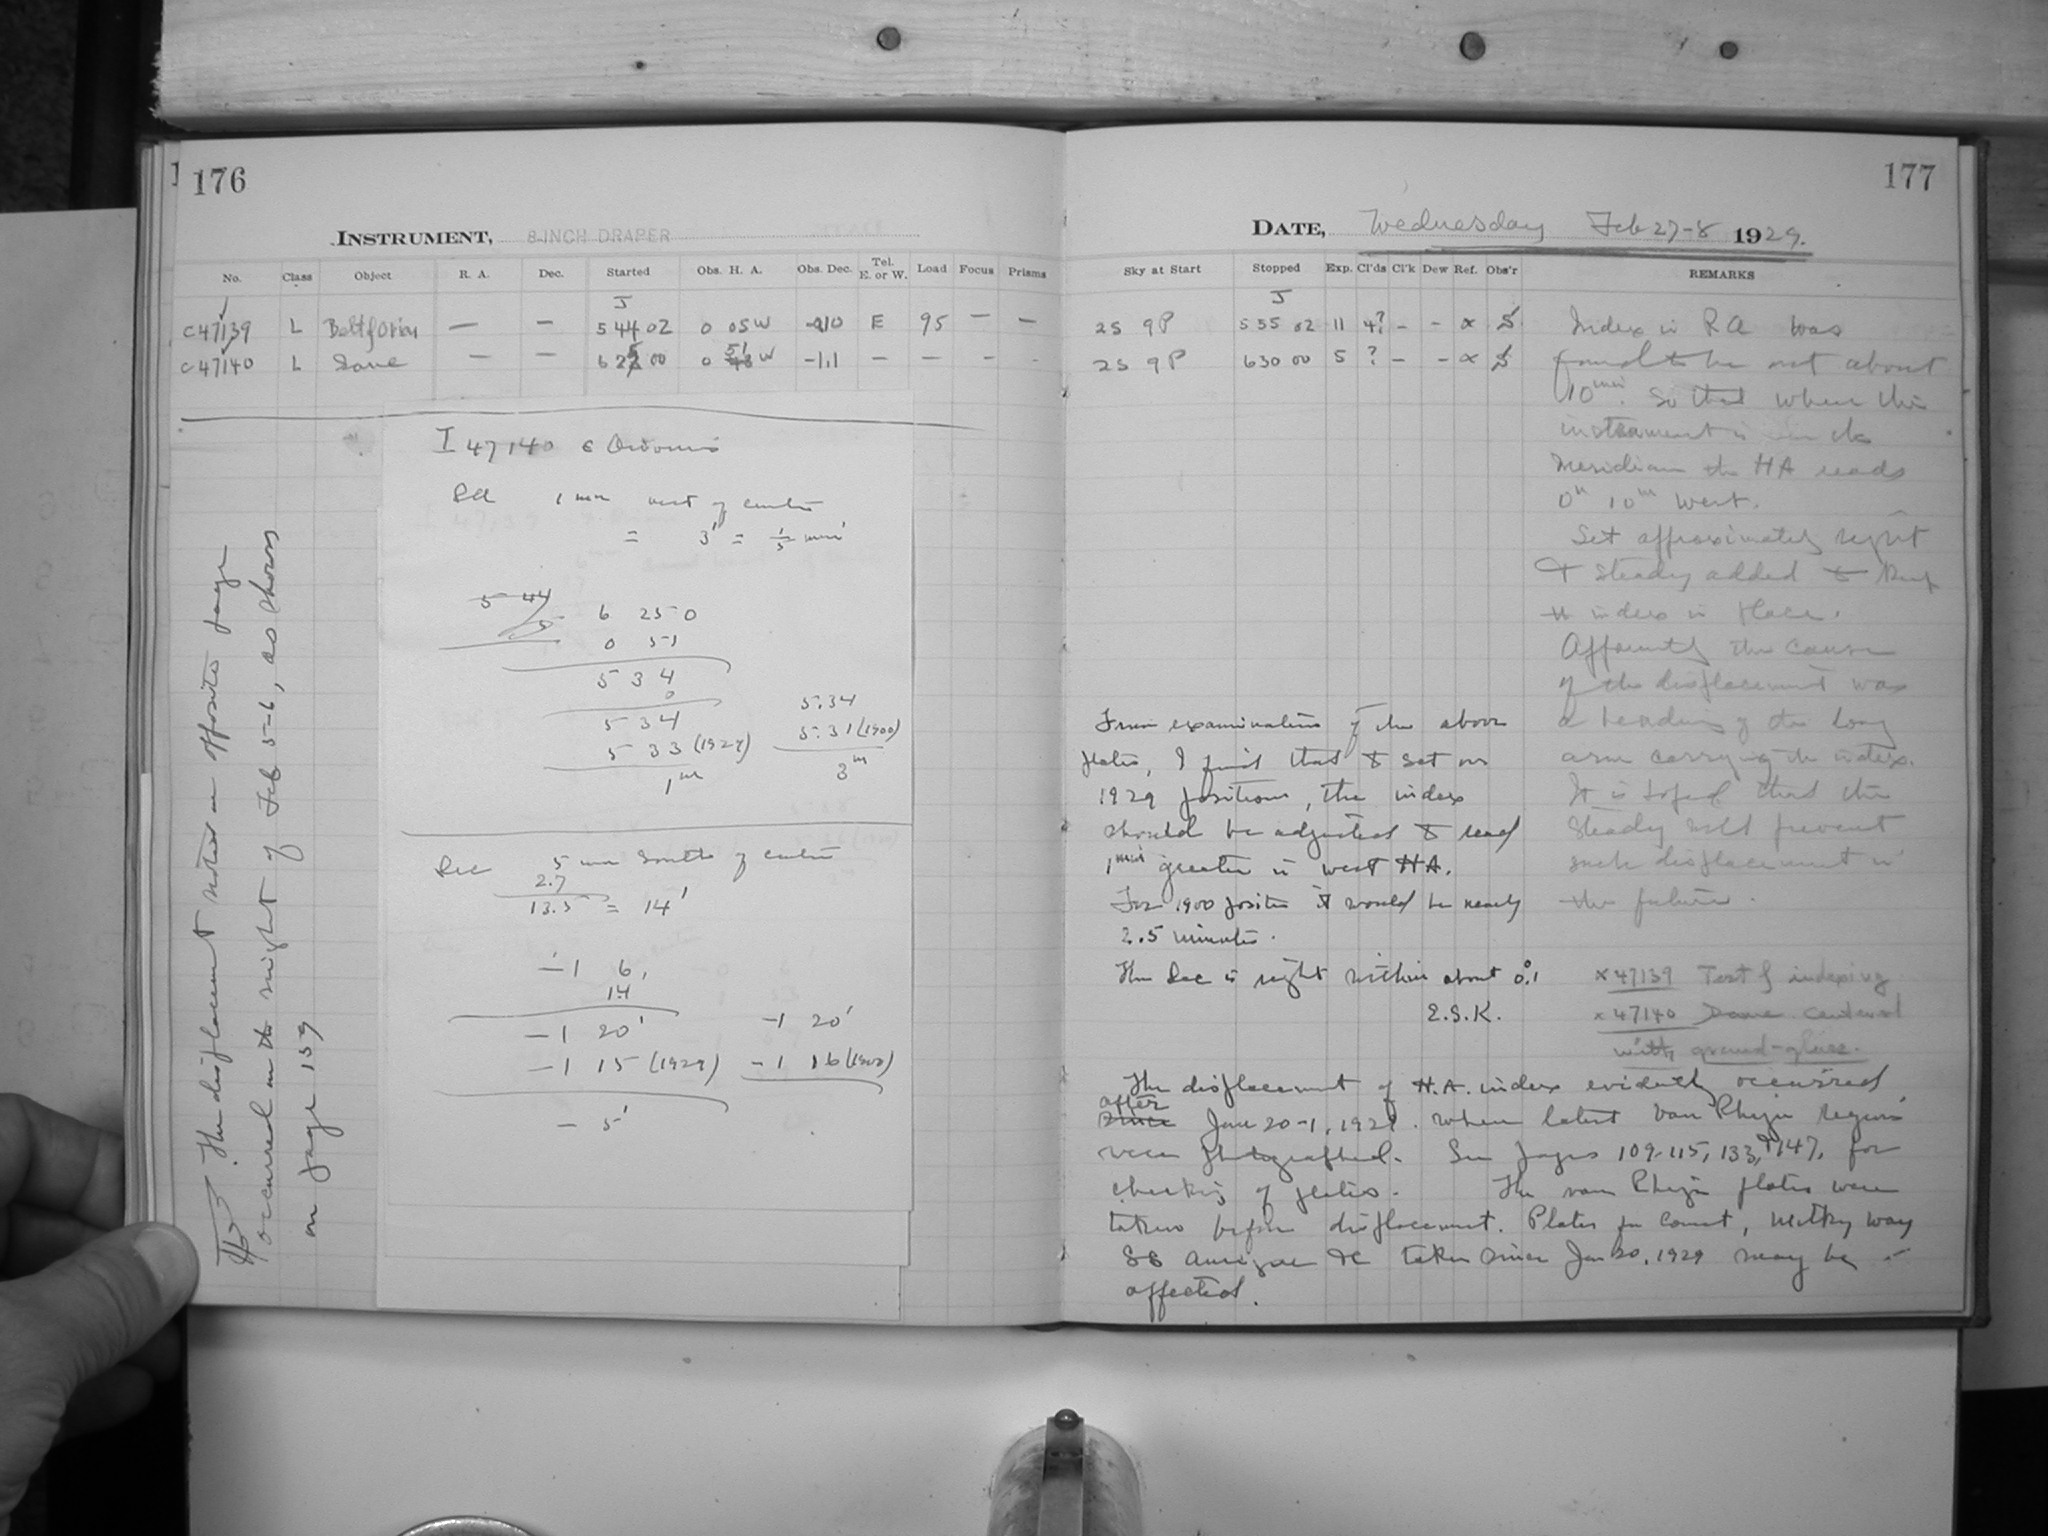 176
INSTRUMENT, 8-INCH DRAPER
No. Class Object R. A. Dec. Started Obs. H. A. Obs. Dec. Tel. E. or W. Load Focus Prisms
J
C47139 L Belt of Orion — — 5 44 02 0 05 W -010 E 95 — —
C47140 L Same — — 6 25 00 0 51 W -1.1 — — — -
I 47140 ε Orionis
RA 1 mm west of center
= 3' = 1/5 min
5 44
5
6 25 0
0 51
5 34
0
5 34
5 33 (1929)
1m
5:34
5:31 (1900)
3m
Dec 5 mm South of center
2.7
13.5 = 14'
-1 6,
14
-1 20'
-1 15 (1929)
- 5'
-1 20'
-1 16 (1900)
The displacement noted on opposite page
occurred on the night of Feb 5-6, as shown
on page 159
177
DATE, Wednesday Feb 27-8 1929.
Sky at Start Stopped Exp. Cl'ds Cl'k Dew Ref. Obs'r REMARKS
J
2S 9P 5 55 02 11 4? - - α S
2S 9P 6 30 00 5 ? - - α S
Index in RA was
found to be out about
10 min. So that when the
instrument is on the
Meridian the HA reads
0h 10m West.
Set approximately right
& steady added to keep
the index in place.
Apparently the cause
of the displacement was
a bending of the long
arm carrying the index.
It is hoped that the
steady will prevent
such displacement in
the future.
From examination of the above
plates, I find that to set on
1929 positions, the index
should be adjusted to read
1 min greater in west HA.
For 1900 position it would be nearly
2.5 minutes.
The Dec is right within about 0°.1
E.S.K.
x 47139 Test of indexing
x 47140 Same centered
with ground-glass.
The displacement of H.A. index evidently occurred
after
Since Jan 20-1, 1929. when latest Van Rhijn regions
were photographed. See pages 109-115, 133, & 147, for
checking of plates. The van Rhijn plates were
taken before displacement. Plates for Comet, Milky Way
SS Aurigae &c taken since Jan 20, 1929 may be
affected.